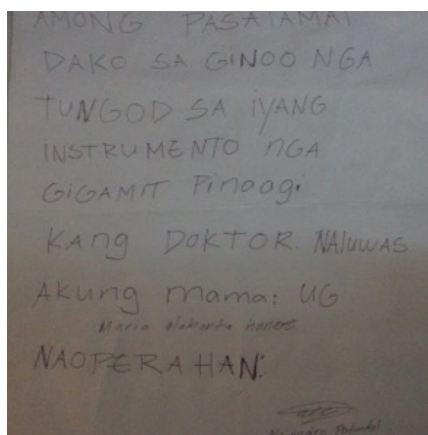 AMONG PASALAMAT
DAKO SA GINOO NGA
TUNGOD SA IYANG
INSTRUMENTO nGA
GiGAMiT Pinaagi
KAng DOKTOR. NALUWAS
AKUng mama: UG
Maria
NAOPERAHAN: